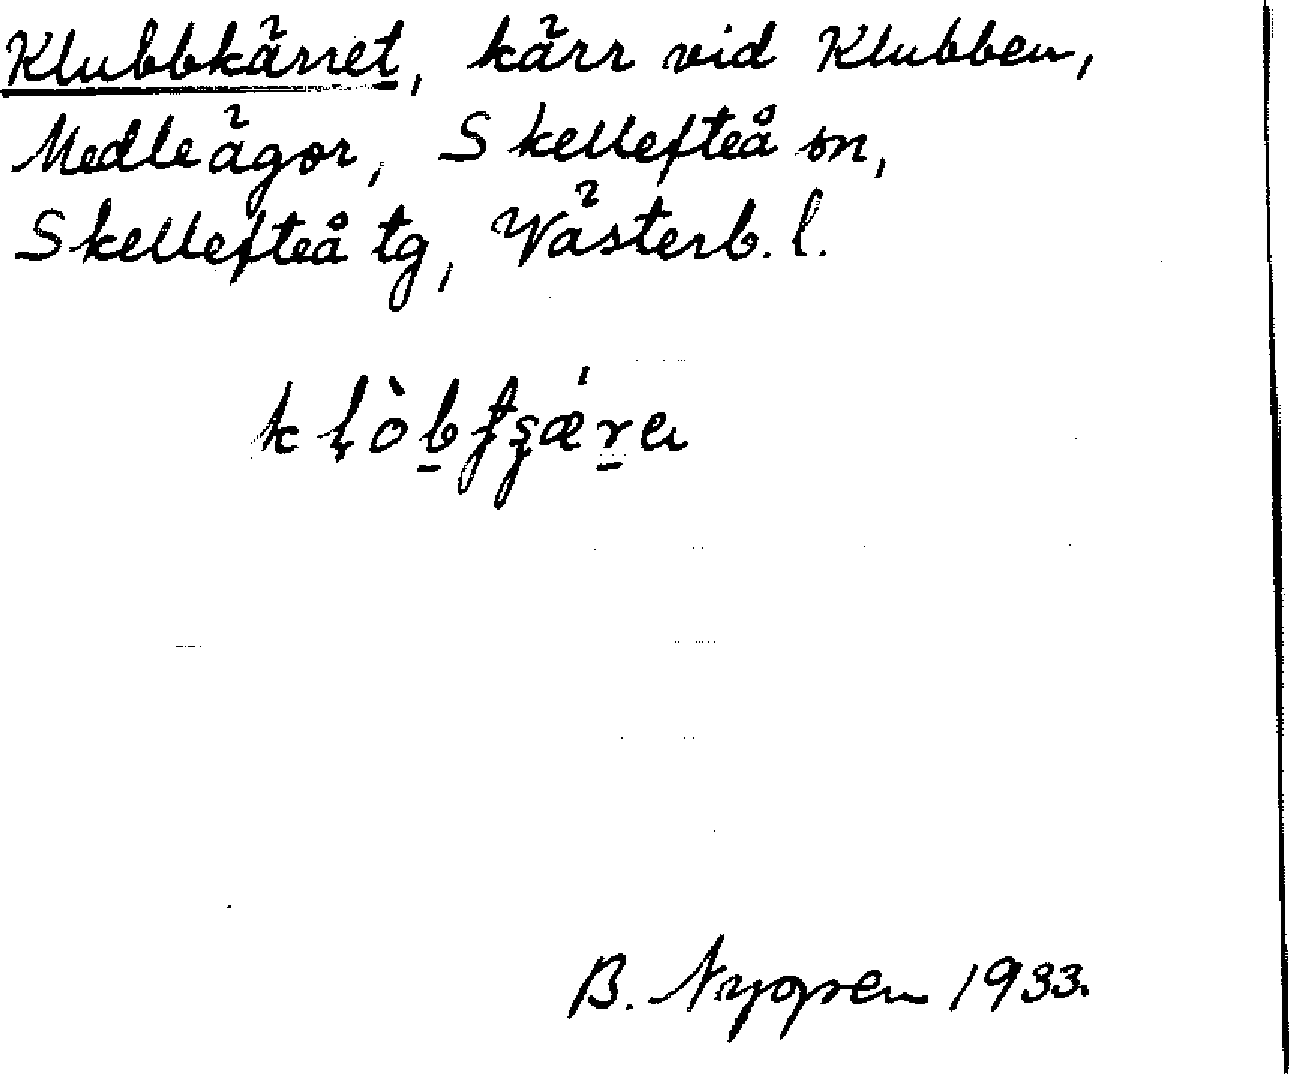 Klubbkärret, kärr vid Klubben,
Medleägor, Skellefteå sn,
Skellefteå tg, Västerb. l.
B. Nygren 1933.